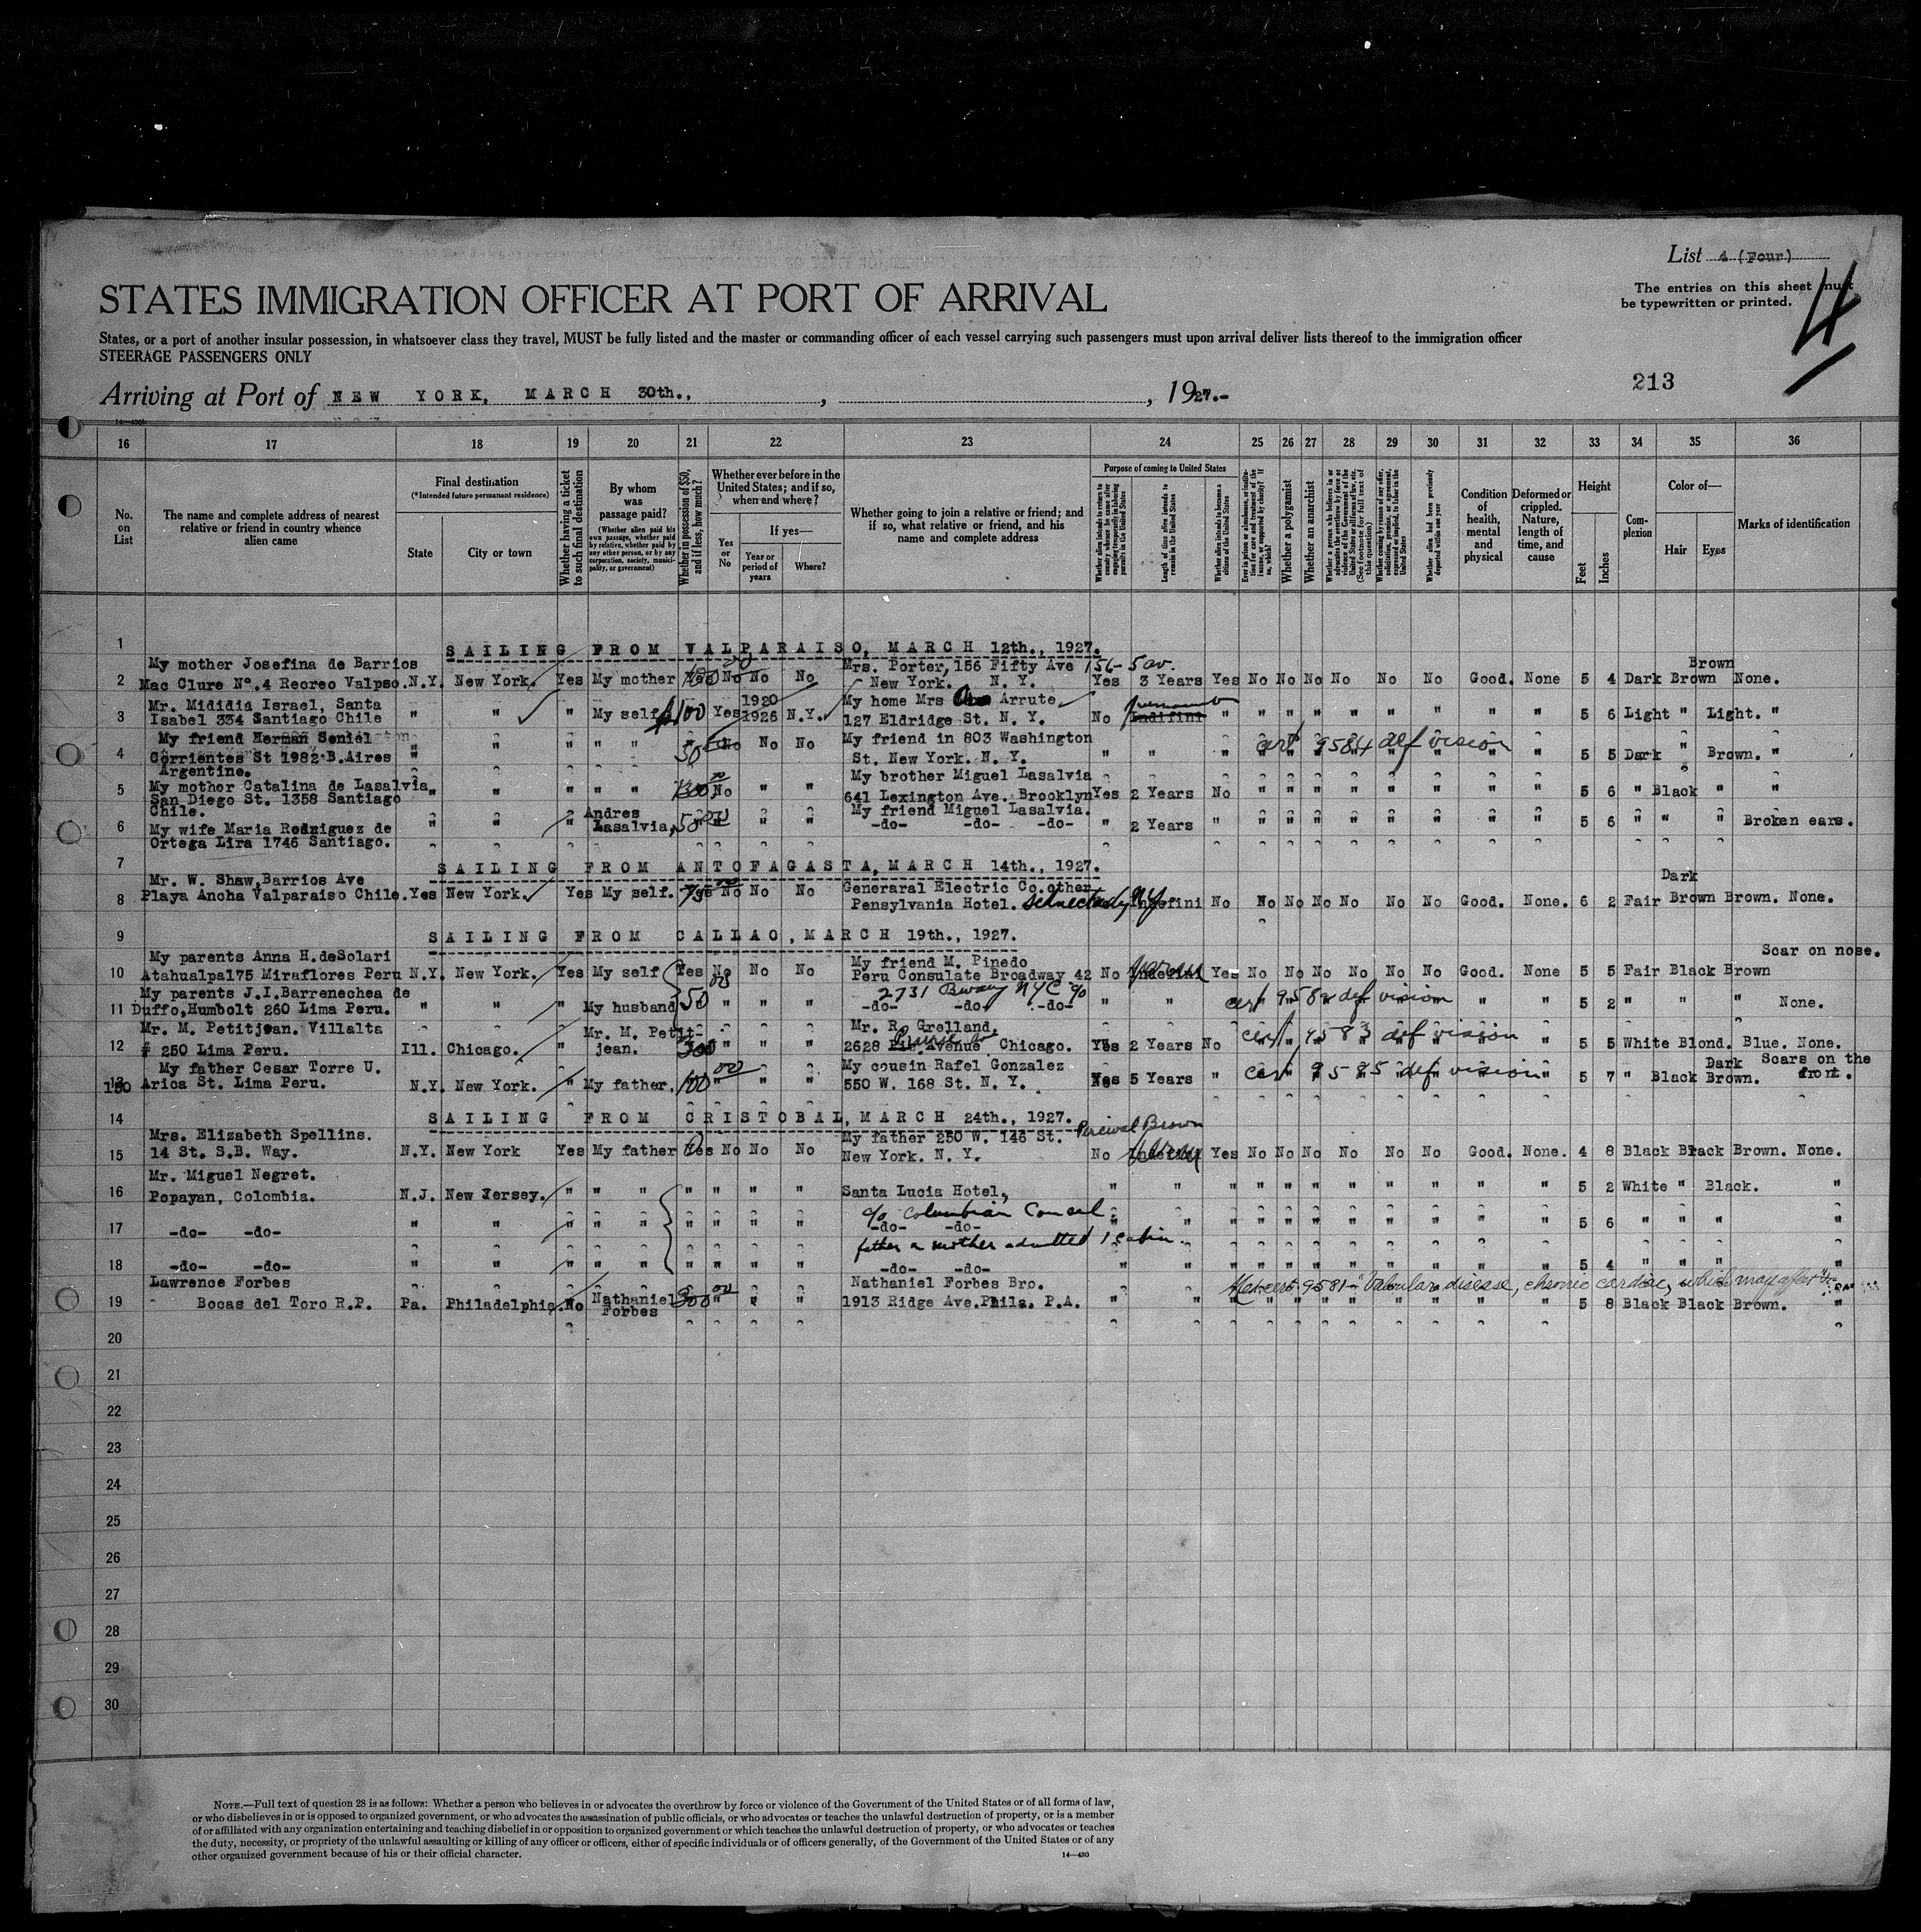 List 4 (Four)
The entries on this sheet must
be typewritten or printed.
4
STATES IMMIGRATION OFFICER AT PORT OF ARRIVAL
States, or a port of another insular possession, in whatsoever class they travel, MUST be fully listed and the master or commanding officer of each vessel carrying such passengers must upon arrival deliver lists thereof to the immigration officer
STEERAGE PASSENGERS ONLY
213
Arriving at Port of NEW YORK, MARCH 30th., , , 1927.-
16 17 18 19 20 21 22 23 24 25 26 27 28 29 30 31 32 33 34 35 36
No. on List
The name and complete address of nearest relative or friend in country whence alien came
Final destination
(*Intended future permanent residence)
State
City or town
Whether having a ticket to such final destination
By whom was passage paid?
(Whether alien paid his own passage, whether paid by relative, whether paid by any other person, or by any corporation, society, municipality, or government)
Whether in possession of $50, and if less, how much?
Whether ever before in the United States; and if so, when and where?
Yes or No
If yes—
Year or period of years
Where?
Whether going to join a relative or friend; and if so, what relative or friend, and his name and complete address
Purpose of coming to United States
Length of time alien intends to remain in the United States
Whether alien intends to become a citizen of the United States
Whether a polygamist
Whether an anarchist
Condition of health, mental and physical
Deformed or crippled. Nature, length of time, and cause
Height
Feet
Inches
Complexion
Color of—
Hair
Eyes
Marks of identification
1 SAILING FROM VALPARAISO, MARCH 12th., 1927.
2 My mother Josefina de Barrios Mrs. Porter, 156 Fifty Ave 156-5 av. Brown
Mac Clure Nº.4 Recreo Valpso. N.Y. New York. Yes My mother Yes No No No New York. N. Y. Yes 3 Years Yes No No No No No No Good. None 5 4 Dark Brown None.
3 Mr. Mididia Israel, Santa 1920 My home Mrs Arrute
Isabel 334 Santiago Chile " " " My self $100 Yes 1926 N.Y. 127 Eldridge St. N. Y. No Indifini " " " " " " " " " 5 6 Light " Light. "
4 My friend Herman Seniel My friend in 803 Washington cert 9584 def vision
Corrientes St 1982 B.Aires " " " " " 50 No No No St. New York. N. Y. " " " 5 5 Dark " Brown. "
Argentine.
5 My mother Catalina de Lasalvia My brother Miguel Lasalvia
San Diego St. 1358 Santiago " " " " " No " " 641 Lexington Ave. Brooklyn Yes 2 Years No " " " " " " " " 5 6 " Black " "
Chile.
6 My wife Maria Rodriguez de Andres My friend Miguel Lasalvia.
Ortega Lira 1746 Santiago. " " " Lasalvia, 50 " " " -do- -do- -do- " 2 Years " " " " " " " " " 5 6 " " " Broken ears.
7 SAILING FROM ANTOFAGASTA, MARCH 14th., 1927.
8 Mr. W. Shaw, Barrios Ave Generaral Electric Co.other Dark
Playa Ancha Valparaiso Chile. Yes New York. Yes My self. No No No Pensylvania Hotel. Schnectady N.Y. Indefini No No No No No No No Good. None. 6 2 Fair Brown Brown. None.
9 SAILING FROM CALLAO, MARCH 19th., 1927.
10 My parents Anna H.deSolari My friend M. Pinedo Scar on nose.
Atahualpa175 Miraflores Peru N.Y. New York. Yes My self Yes No No No Peru Consulate Broadway 42 No Indefini Yes No No No No No No Good. None 5 5 Fair Black Brown
11 My parents J.I.Barrenechea de 2731 Bway NYC % cert 9582 def vision
Duffo, Humbolt 260 Lima Peru. " " " My husband 50 " " " -do- -do- -do- " " 5 2 " " " None.
12 Mr. M. Petitjean. Villalta Mr. M. Petit- Mr. R. Grelland, cert 9583 def vision
# 250 Lima Peru. Ill. Chicago. " jean. 300 " " " 2628 Avenue Chicago. Yes 2 Years No 5 5 White Blond. Blue. None.
13 My father Cesar Torre U. My cousin Rafel Gonzalez cert 9585 def vision Dark Scars on the
150 Arica St. Lima Peru. N.Y. New York. " My father. 100 " " " 550 W. 168 St. N. Y. Yes 5 Years " 5 7 " Black Brown. front.
14 SAILING FROM CRISTOBAL, MARCH 24th., 1927.
15 Mrs. Elizabeth Spellins. My father 250 W. 146 St. Percival Brown
14 St. S.B. Way. N.Y. New York Yes My father Yes No No No New York. N. Y. No Yes No No No No No No Good. None. 4 8 Black Black Brown. None.
16 Mr. Miguel Negret.
Popayan, Colombia. N.J. New Jersey. " " " " " " " Santa Lucia Hotel, " " " " " " " " " " " 5 2 White " Black. "
17 c/o Columbian Consul.
-do- -do- " " " " " " " " " -do- -do- " " " " " " " " " " " 5 6 " " " "
18 father & mother admitted 1 cabin.
-do- -do- " " " " " " " " " -do- -do- " " " " " " " " " " " 5 4 " " " "
19 Lawrence Forbes Nathaniel Forbes Bro. cert 9581- "Valvular disease, chronic cardiac, which may affect
Bocas del Toro R.P. Pa. Philadelphia. No Nathaniel Forbes 300 " " " 1913 Ridge Ave.Phila. P.A. " " " " " " " " " " " 5 8 Black Black Brown. "
20
21
22
23
24
25
26
27
28
29
30
NOTE.—Full text of question 28 is as follows: Whether a person who believes in or advocates the overthrow by force or violence of the Government of the United States or of all forms of law,
or who disbelieves in or is opposed to organized government, or who advocates the assassination of public officials, or who advocates or teaches the unlawful destruction of property, or is a member
of or affiliated with any organization entertaining and teaching disbelief in or opposition to organized government or which teaches the unlawful destruction of property, or who advocates or teaches
the duty, necessity, or propriety of the unlawful assaulting or killing of any officer or officers, either of specific individuals or of officers generally, of the Government of the United States or of any
other organized government because of his or their official character.
14—430